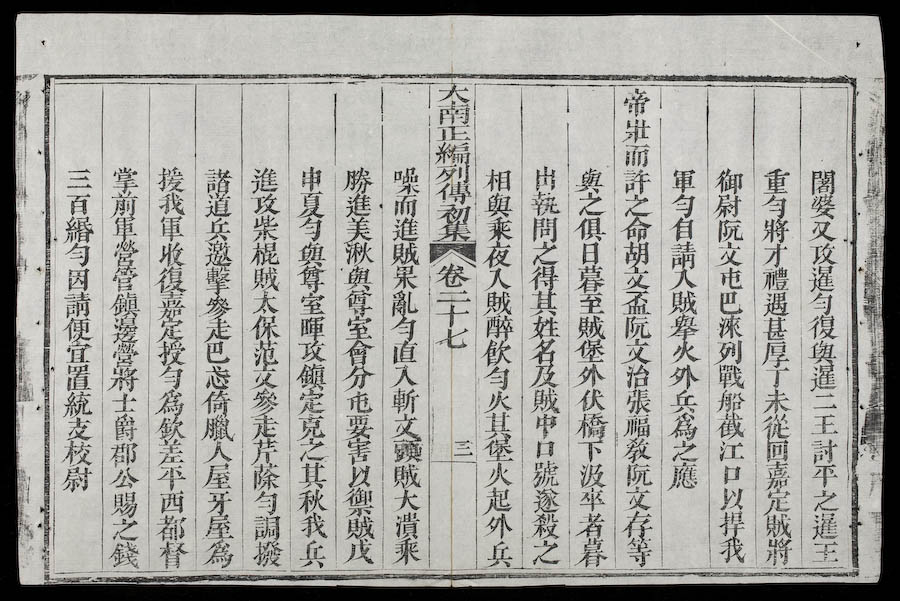 闍婆又攻暹勻復與暹二王討平之暹王
重勻將才禮遇甚厚丁未從回嘉定賊將
御尉阮文屯巴淶列戰船截江口以捍我
軍勻自請入賊舉火外兵為之應
帝壯而許之命胡文盃阮文治張福教阮文存等
與之俱日暮至賊堡外伏橋下汲卒者暮
出執問之得其姓名及賊中口號遂殺之
相與乘夜入賊醉飲勻火其堡火起外兵
大南正編列傳初集 卷二十七 三
噪而進賊果亂勻直入斬文頭賊大潰乘
勝進美湫與尊室會分屯要害以禦賊戊
申夏勻與尊室暉攻鎮定克之其秋我兵
進攻柴棍賊太保范文參走芹蒢勻調撥
諸道兵邀擊參走巴忒倚臘人屋牙屋為
援我軍收復嘉定授勻為欽差平西都督
掌前軍營管鎮邊營將士爵郡公賜之錢
三百緡勻因請便宜置統支校尉